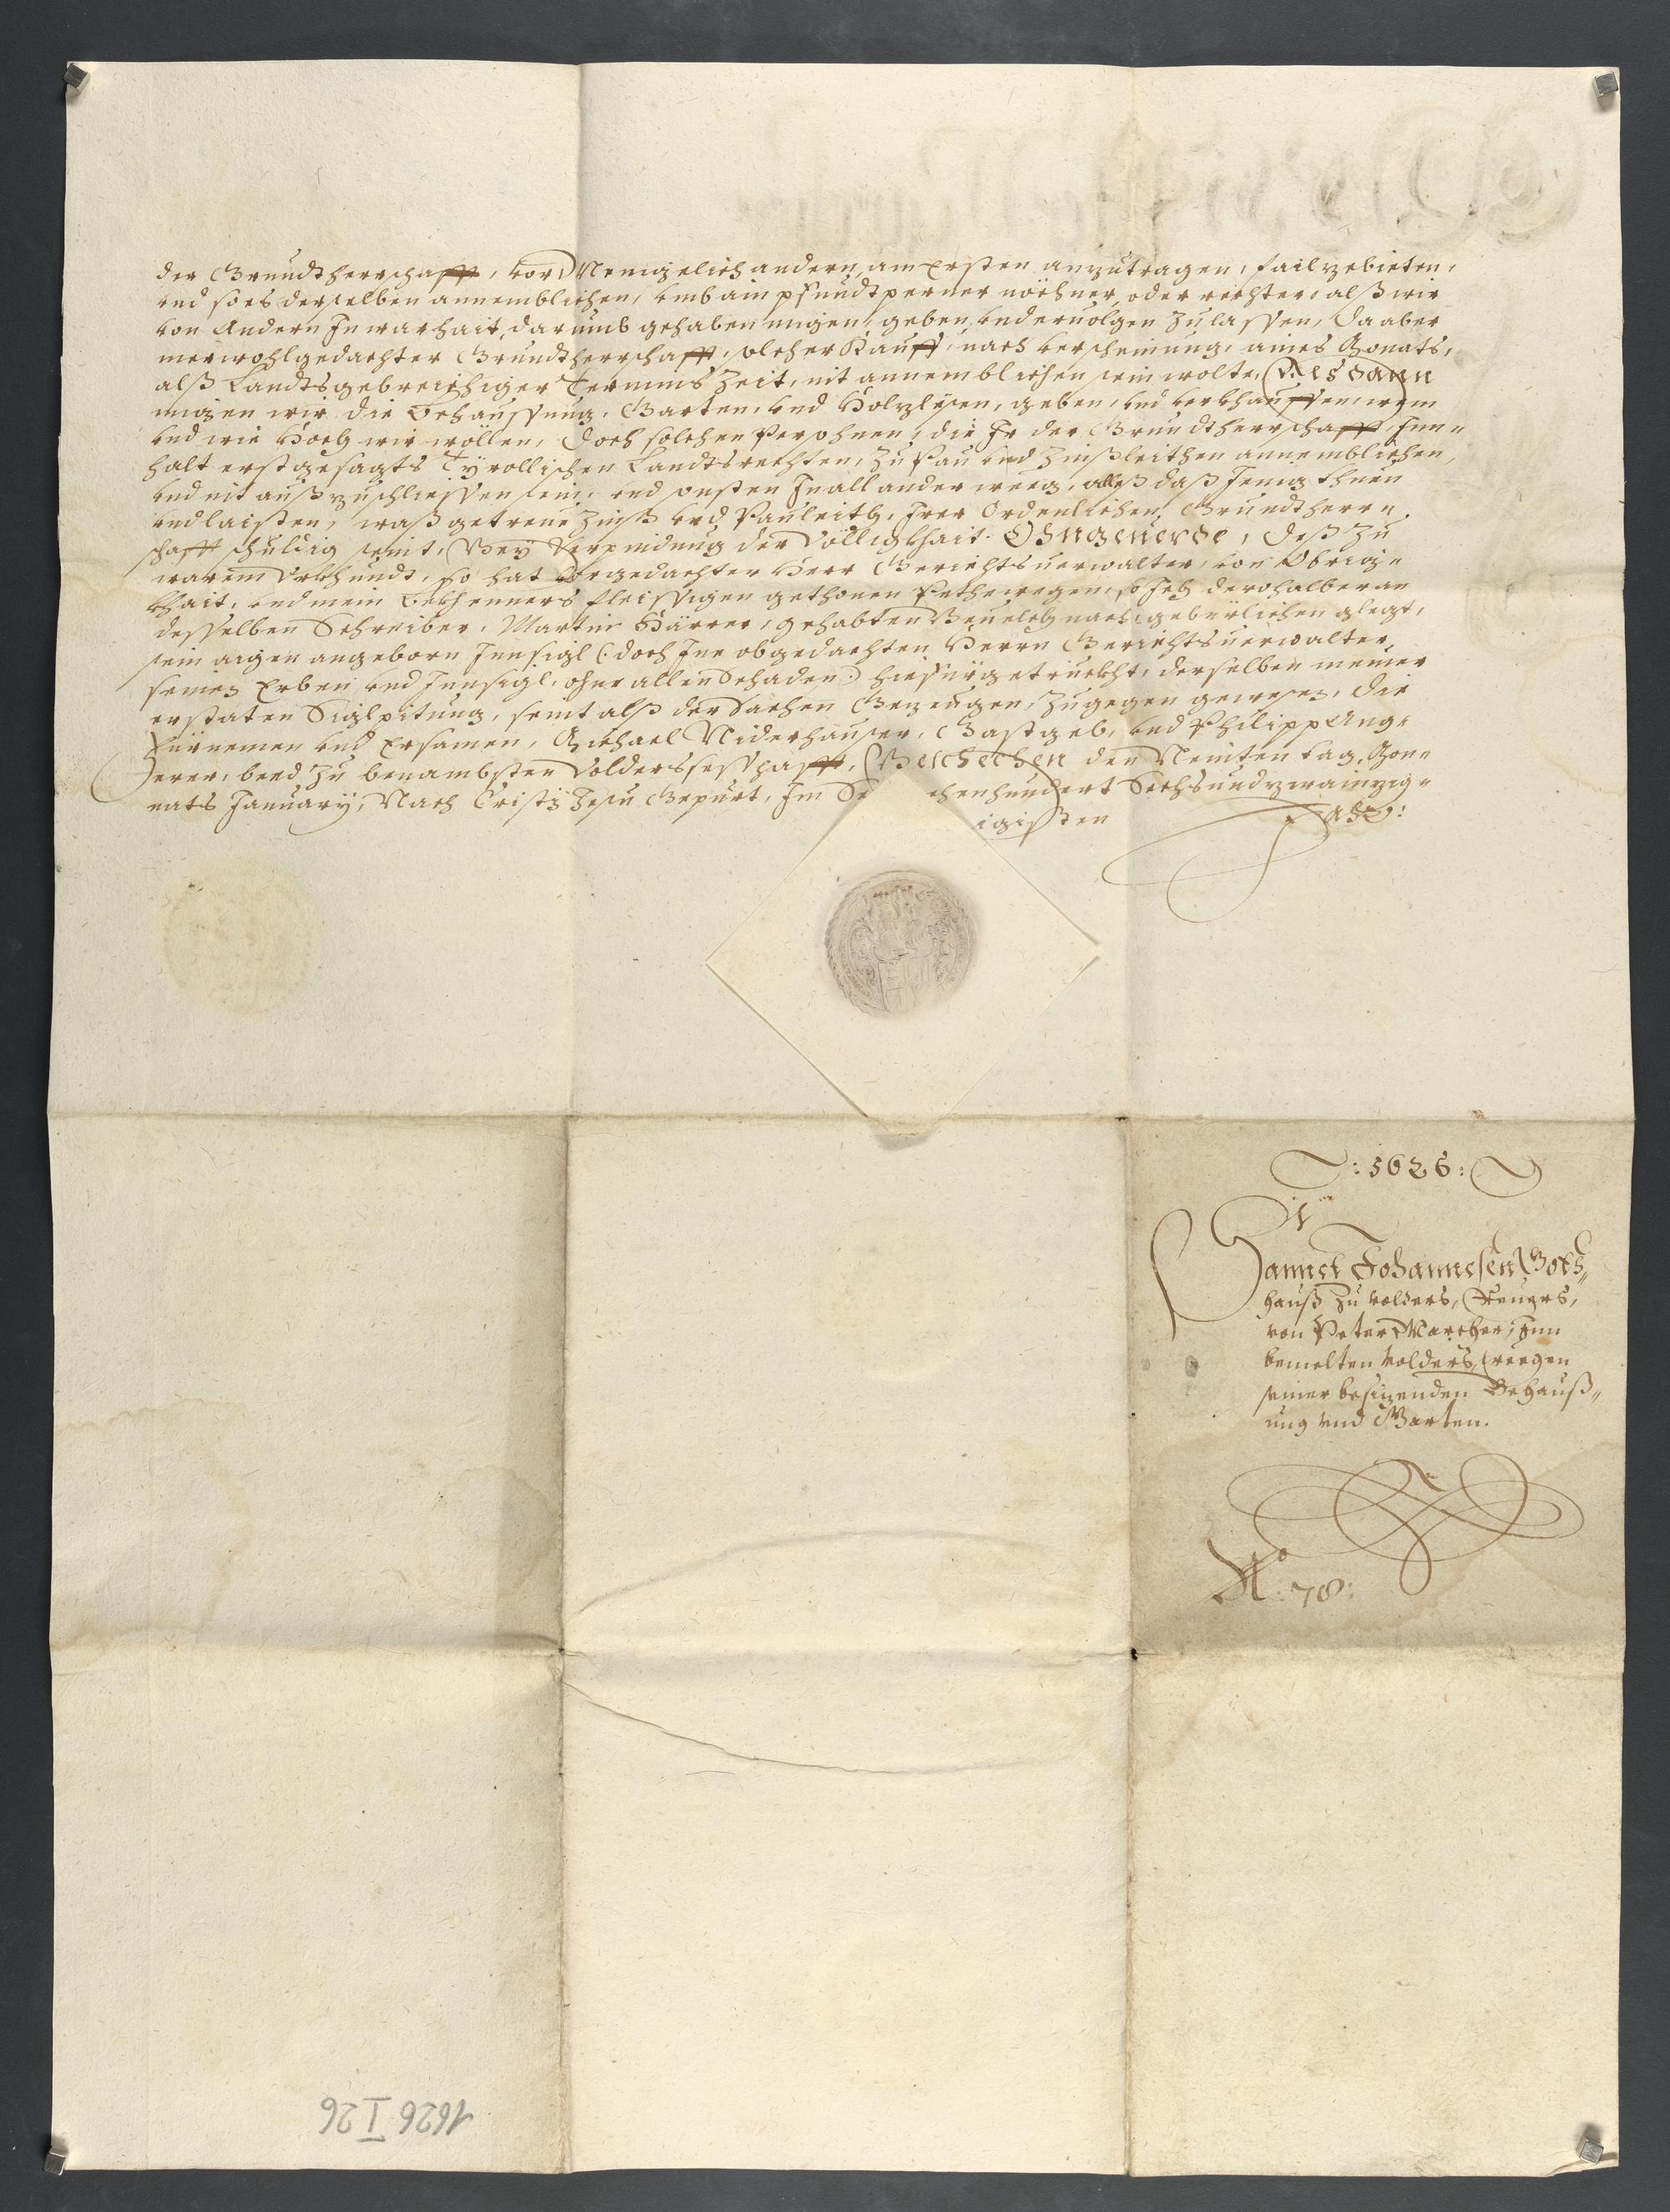 der Grundtherrschafft, vor Menigelich andern, am Ersten anzutragen, failzebieten,
vnd so es derselben annemblichen, vmb ain pfundt perner nöchner, oder rechter, alß wir
von Andern In warhait, darumb gehaben mügen, geben, vnd eruolgen Zulassen, Da aber
merwohlgedachter Grundtherrschafft, solcher Kauff, nach verscheinung, aines Monats,
alß Landtsgebreichiger Termins Zeit, nit annemblichen sein wolte, Alsdann
mügen wir die Behaussung, Garten, vnd Holzlesen, geben, vnd verkhauffen, wem
vnd wie Hoch wir wöllen, Doch solchen Persohnen, die Ir der Grundtherrschafft, Inn=
halt erstgesagts Tyrollischen Landtsrechten, Zu Pau vnd Zinßleithen annemblichen,
vnd nit außzuschliessen sein, vnd sonsten In all ander weeg, alleß daß Jenig thuen
vnd laisten, waß getreue Zinß vnd Pauleith, Irer Ordenlichen Grundtherr=
schafft schuldig seint, Bey Verpindung der Völligkhait. Ohngeuerde, Deß Zu
warem Vrkhundt, so hat Vorgedachter Herr Gerichtsuerwalter, von Obrig=
khait, vnd mein Bekhenners fleissigen gethonen Pethewegen, so Ich derohalber an
desselben Schreiber, Martin Härrer, gehabten Beuelch nach, gebürlichen glegt,
sein aigen angeborn Innsigl (: doch Ime obgedachten Herrn Gerichtsuerwalter,
seinen Erben vnd Innsigl, ohne allen Schaden :) hiefürgetruckht, derselben meiner
erstaten Siglpitung, seint alß der Sachen Gezeugen, Zugegen gewesen, Die
Fürnemen vnd Ersamen, Michael Niderhauser, Gastgeb, vnd Philipp Ang=
erer, beed Zu benambsten Volders sesshafft, Beschechen den Neinten tag, Mon=
nats January, Nach Cristy Jesu Gepurt, Im Se chenhundert Sechsundzwainzig=
igisten Adō:
: 1626 :
Sannct Johannesen Gots„
hauß Zu Volders, Reuers,
von Peter Marcher, Inn
bemelten Volders, wegen
seiner besizenden Behauß„
ung vnd Garten.
No: 78:
1626 I 26